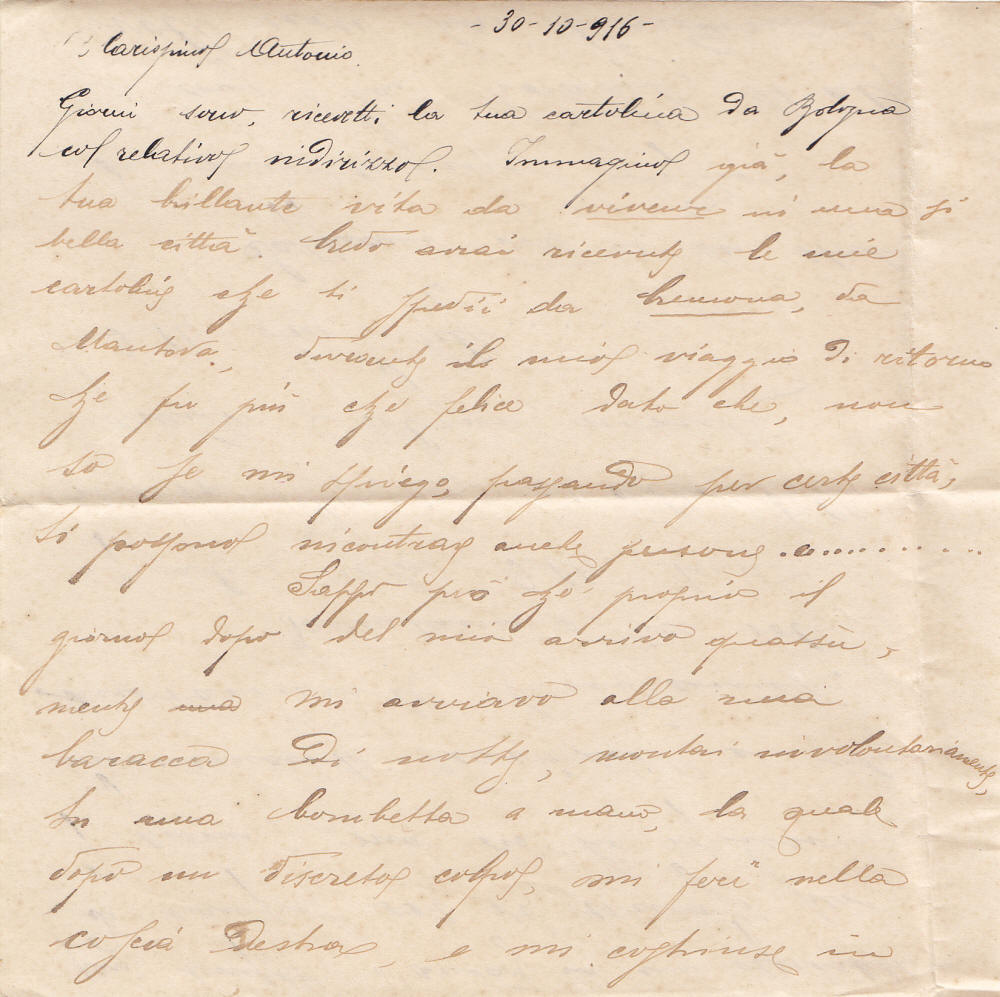 - 30-10-916 -
Carissimo Antonio.
Giorni sono, ricevetti la tua cartolina da Bologna
col relativo indirizzo. Immagino già, la
tua brillante vita da viveur in una sì
bella città. Credo avrai ricevute le mie
cartoline che ti spedii da Cremona, da
Mantova, durante il mio viaggio di ritorno
che fu più che felice dato che, non
so se mi spiego, passando per certe città,
si possono incontrare anche persone ............
Sappi però che proprio il
giorno dopo del mio arrivo quassù,
mente una mi avviavo alla mia
baracca di notte, montai involontariamente,
su una bombetta a mano, la quale
dopo un discreto colpo, mi ferì nella
coscia destra, e mi costrinse in